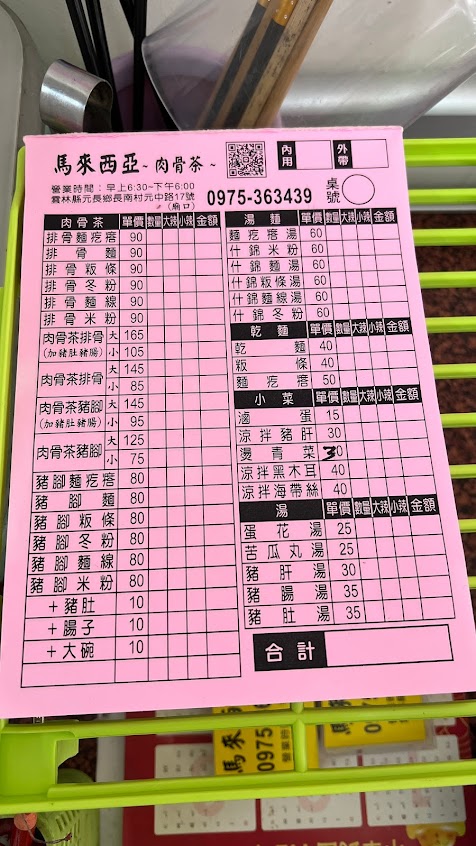 馬來西亞~肉骨茶~
內用
外帶
營業時間：早上6:30~下午6:00
雲林縣元長鄉長南村元中路17號
(廟口)
0975-363439
桌號
肉骨茶 單價 數量 大辣 小辣 金額
排骨麵疙瘩 90
排骨麵 90
排骨粄條 90
排骨冬粉 90
排骨麵線 90
排骨米粉 90
肉骨茶排骨 (加豬肚豬腸) 大 165
小 105
肉骨茶排骨 大 145
小 85
肉骨茶豬腳 (加豬肚豬腸) 大 145
小 95
肉骨茶豬腳 大 125
小 75
豬腳麵疙瘩 80
豬腳麵 80
豬腳粄條 80
豬腳冬粉 80
豬腳麵線 80
豬腳米粉 80
+豬肚 10
+腸子 10
+大碗 10
湯麵 單價 數量 大辣 小辣 金額
麵疙瘩湯 60
什錦米粉 60
什錦麵湯 60
什錦粄條湯 60
什錦麵線湯 60
什錦冬粉 60
乾麵 單價 數量 大辣 小辣 金額
乾麵 40
粄條 40
麵疙瘩 50
小菜 單價 數量 大辣 小辣 金額
滷蛋 15
涼拌豬肝 30
燙青菜 30
涼拌黑木耳 40
涼拌海帶絲 40
湯 單價 數量 大辣 小辣 金額
蛋花湯 25
苦瓜丸湯 25
豬肝湯 30
豬腸湯 35
豬肚湯 35
合計
馬來
0975
營業時